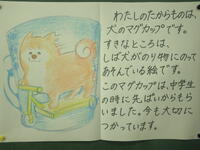 わたしのたからものは、
犬のマグカップです。
すきなところは、
しば犬がのり物にのって
あそんでいる絵です。
このマグカップは、中学生
の時に先ぱいからもら
いました。今も大切に
つかっています。